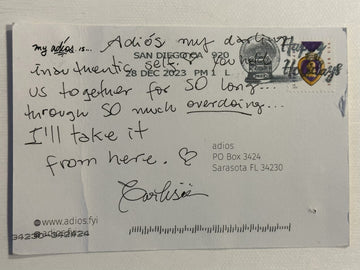 my adiós is... Adiós my darling
SAN DIEGO CA 920
Happy
Inauthentic self. You held
28 DEC 2023 PM 1 L
Holidays
us together for so long...
through so much overdoing...
I'll take it
from here. ♡
adios
PO Box 3424
Sarasota FL 34230
www.adios.fyi
adios.fyi
34230-342424